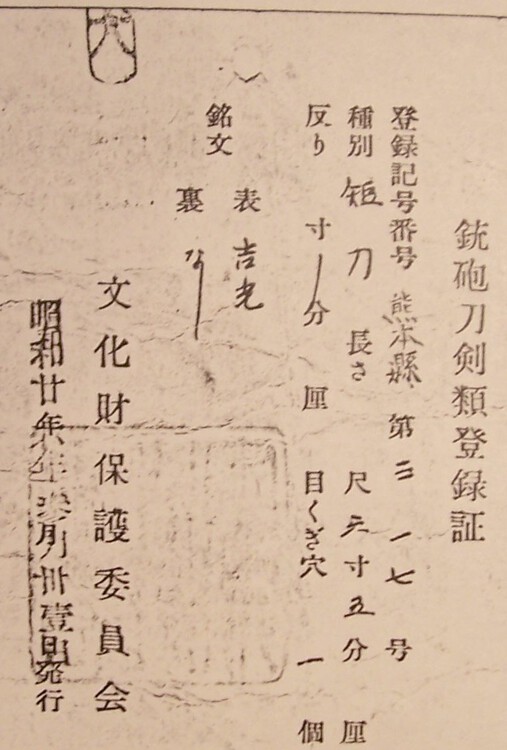 銃砲刀剣類登録証
登録記号番号 熊本縣 第 二一七 号
種別 短刀 長さ 尺 寸五分 厘
反り 寸 分 厘 目くぎ穴 一 個
銘文 表 吉光
裏 なし
文化財保護委員会
昭和廿六年 月卅壹日発行